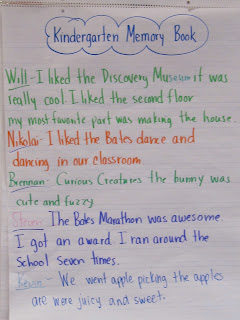 Kindergarten Memory Book
Will - I liked the Discovery Museum it was
really cool. I liked the second floor
my most favorite part was making the house.
Nikolai - I liked the Bates dance and
dancing in our classroom.
Brennan - Curious Creatures the bunny was
cute and fuzzy.
The Bates Marathon was awesome.
I got an award. I ran around the
School seven times.
Kevin - We went apple picking the apples
are were juicy and sweet.